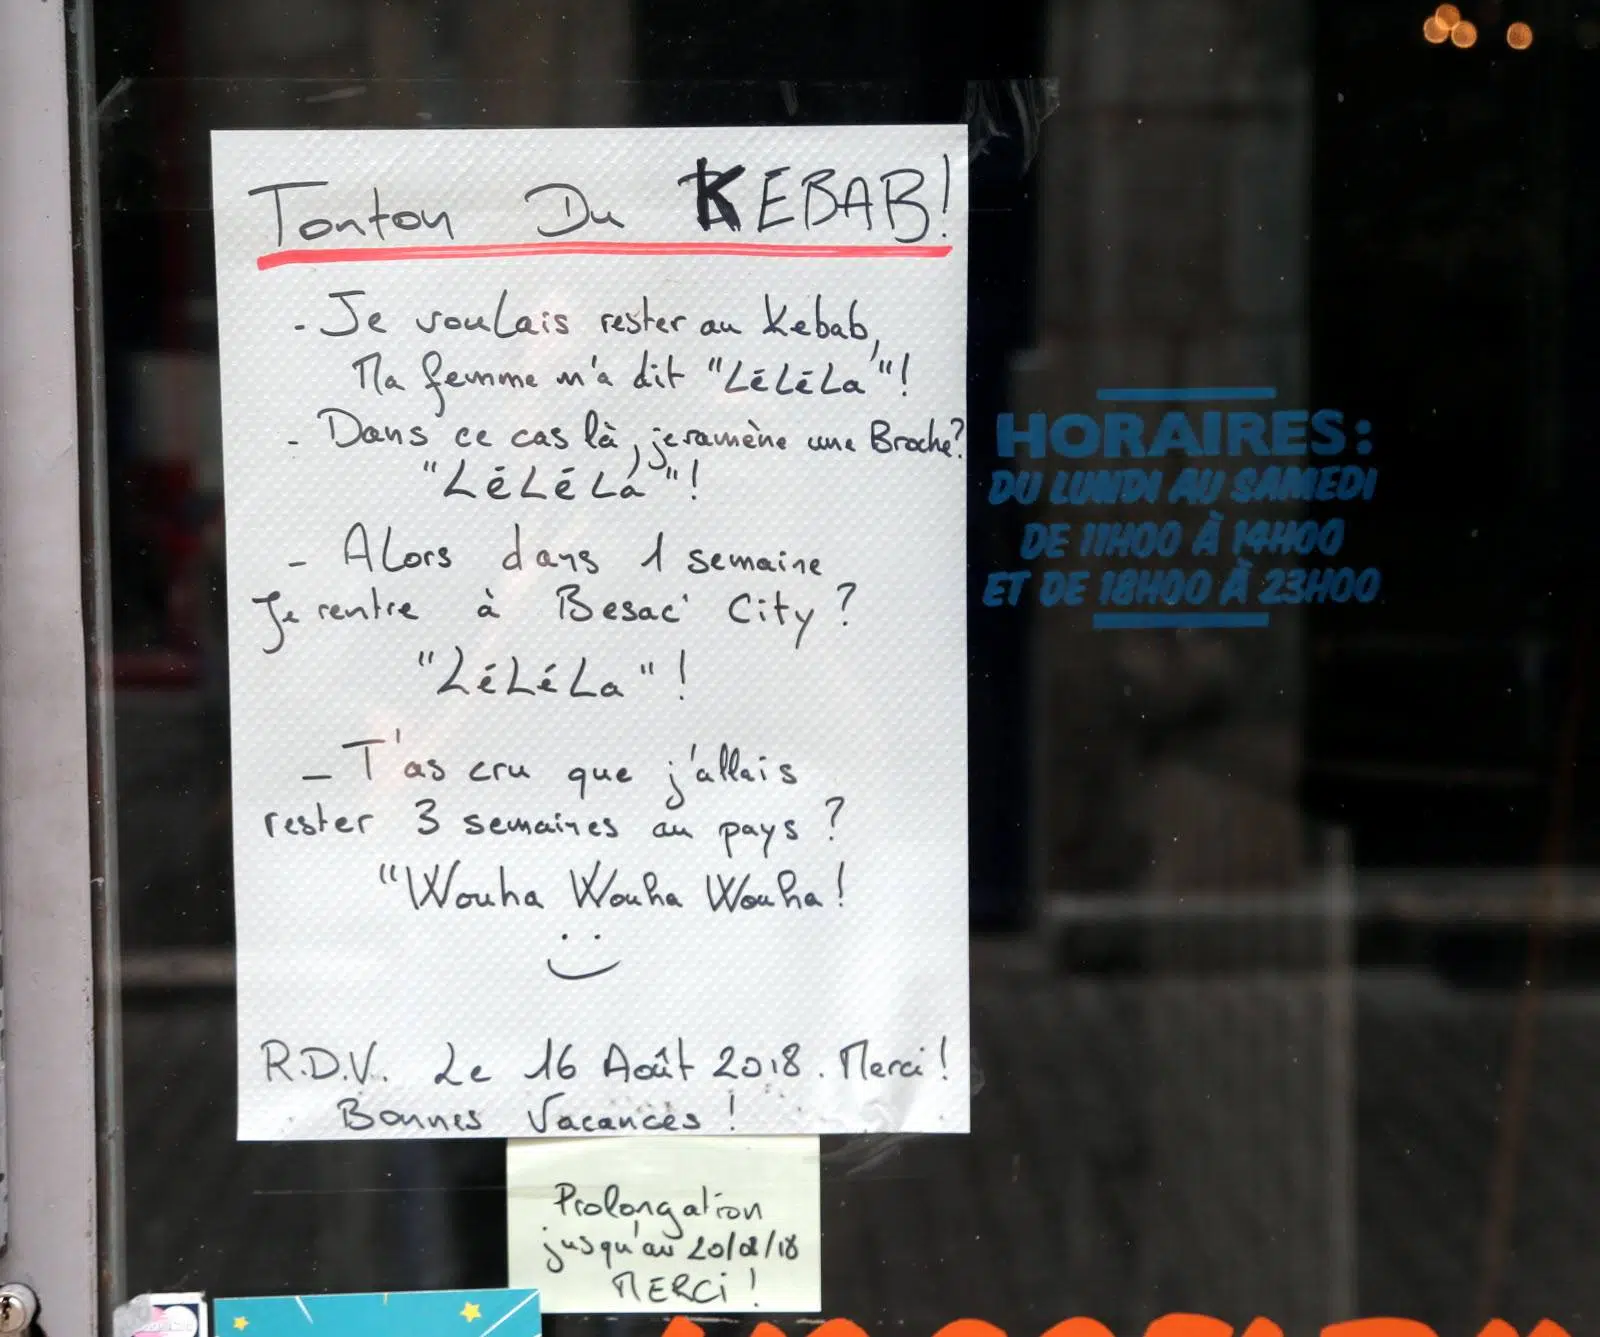 Tonton Du KEBAB!
- Je voulais rester au Kebab,
Ma femme m'a dit "LéLéLa"!
- Dans ce cas là, je ramène une Broche?
"LéLéLa"!
- Alors dans 1 semaine
Je rentre à Besac' City ?
"LéLéLa"!
- T'as cru que j'allais
rester 3 semaines au pays ?
"Wouha Wouha Wouha!
R.D.V. Le 16 Août 2018. Merci!
Bonnes Vacances !
Prolongation
jusqu'au 20/08/18
MERCi !
HORAIRES:
DU LUNDI AU SAMEDI
DE 11H00 À 14H00
ET DE 18H00 À 23H00